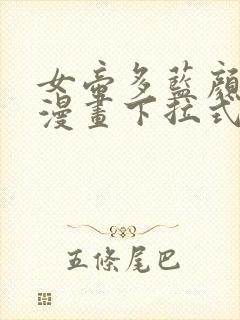 女帝多藍顏
漫畫下拉式
五條尾巴